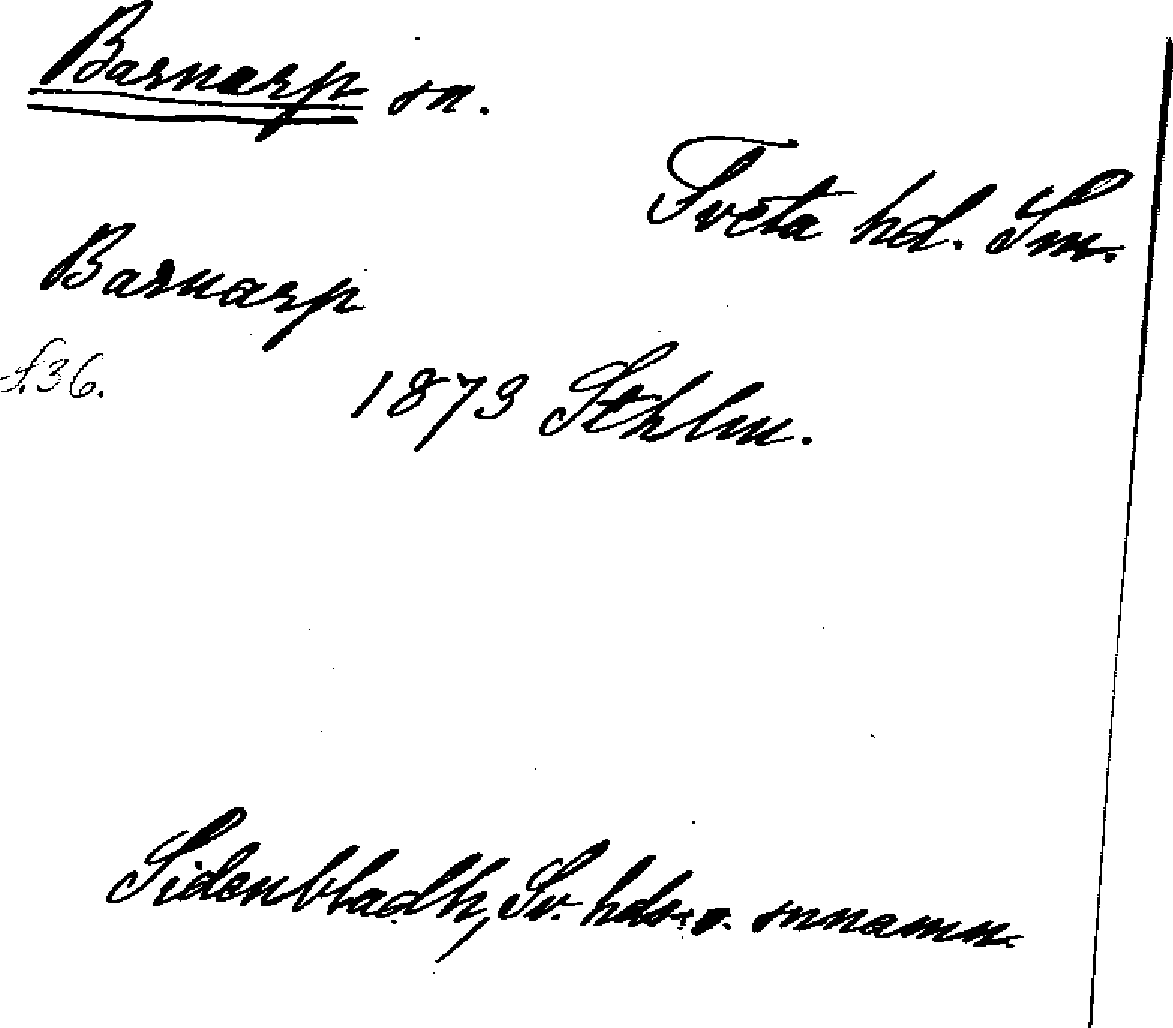 Barnarp sn.
Tveta hd. Sm.
Barnarp
s.36.
1873 Sthlm.
Sidenbladh, Sv. hds- o. snnamn.